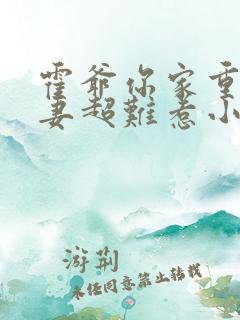 霍爷你家重
妻超難惹小
游荊
未经同意禁止转载